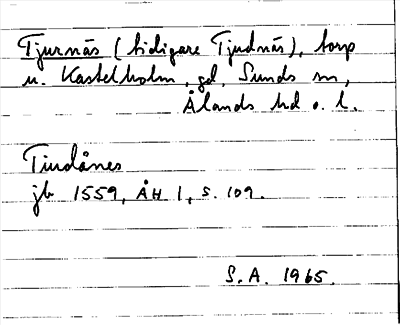 Tjurnäs (tidigare Tjudnäs), torp
u. Kastelholm, gd, Sunds sn,
Ålands hd o. l.
Tiudånes
jb 1559, ÅH 1, s. 109.
S.A. 1965.